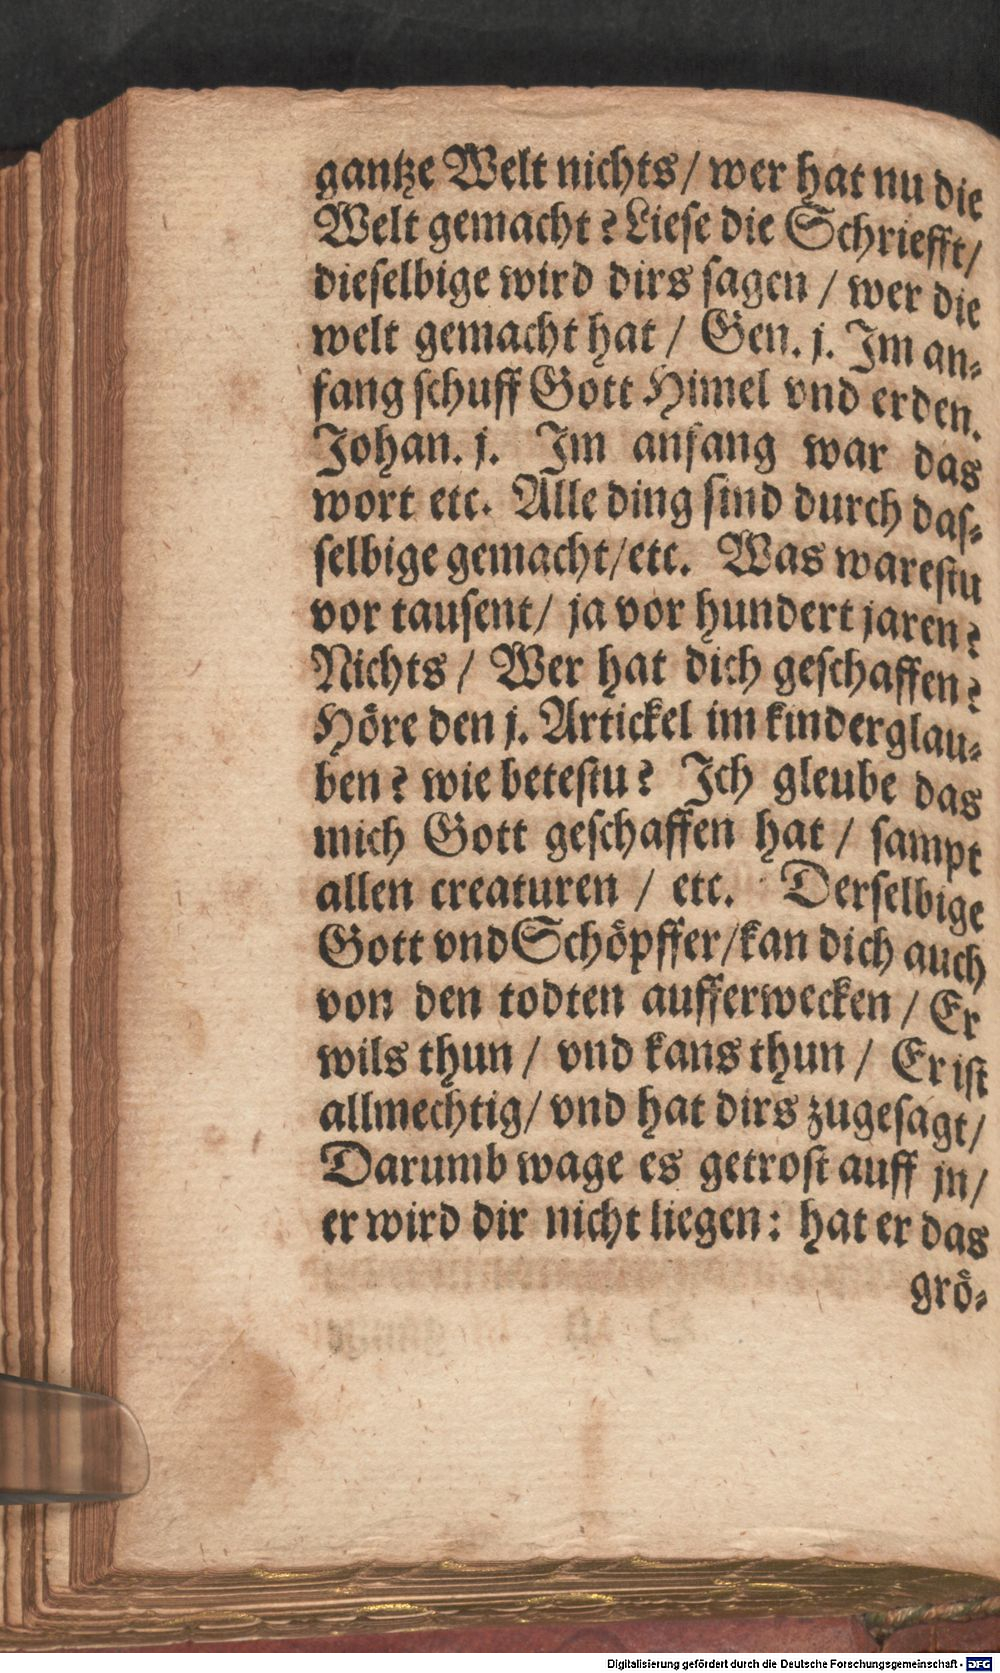 gantze Welt nichts/ wer hat nu die
Welt gemacht? Liese die Schriefft/
dieselbige wird dirs sagen / wer die
welt gemacht hat / Gen. j. Im an-
fang schuff Gott Himel vnd erden.
Johan. j. Im anfang war das
wort etc. Alle ding sind durch das-
selbige gemacht/etc. Was warestu
vor tausent/ ja vor hundert jaren?
Nichts / Wer hat dich geschaffen?
Höre den j. Artickel im kinderglau-
ben? wie betestu? Ich gleube das
mich Gott geschaffen hat / sampt
allen creaturen / etc. Derselbige
Gott vnd Schöpffer/kan dich auch
von den todten aufferwecken / Er
wils thun / vnd kans thun / Er ist
allmechtig/ vnd hat dirs zugesagt/
Darumb wage es getrost auff jn/
er wird dir nicht liegen: hat er das
grö-
Digitalisierung gefördert durch die Deutsche Forschungsgemeinschaft - DFG